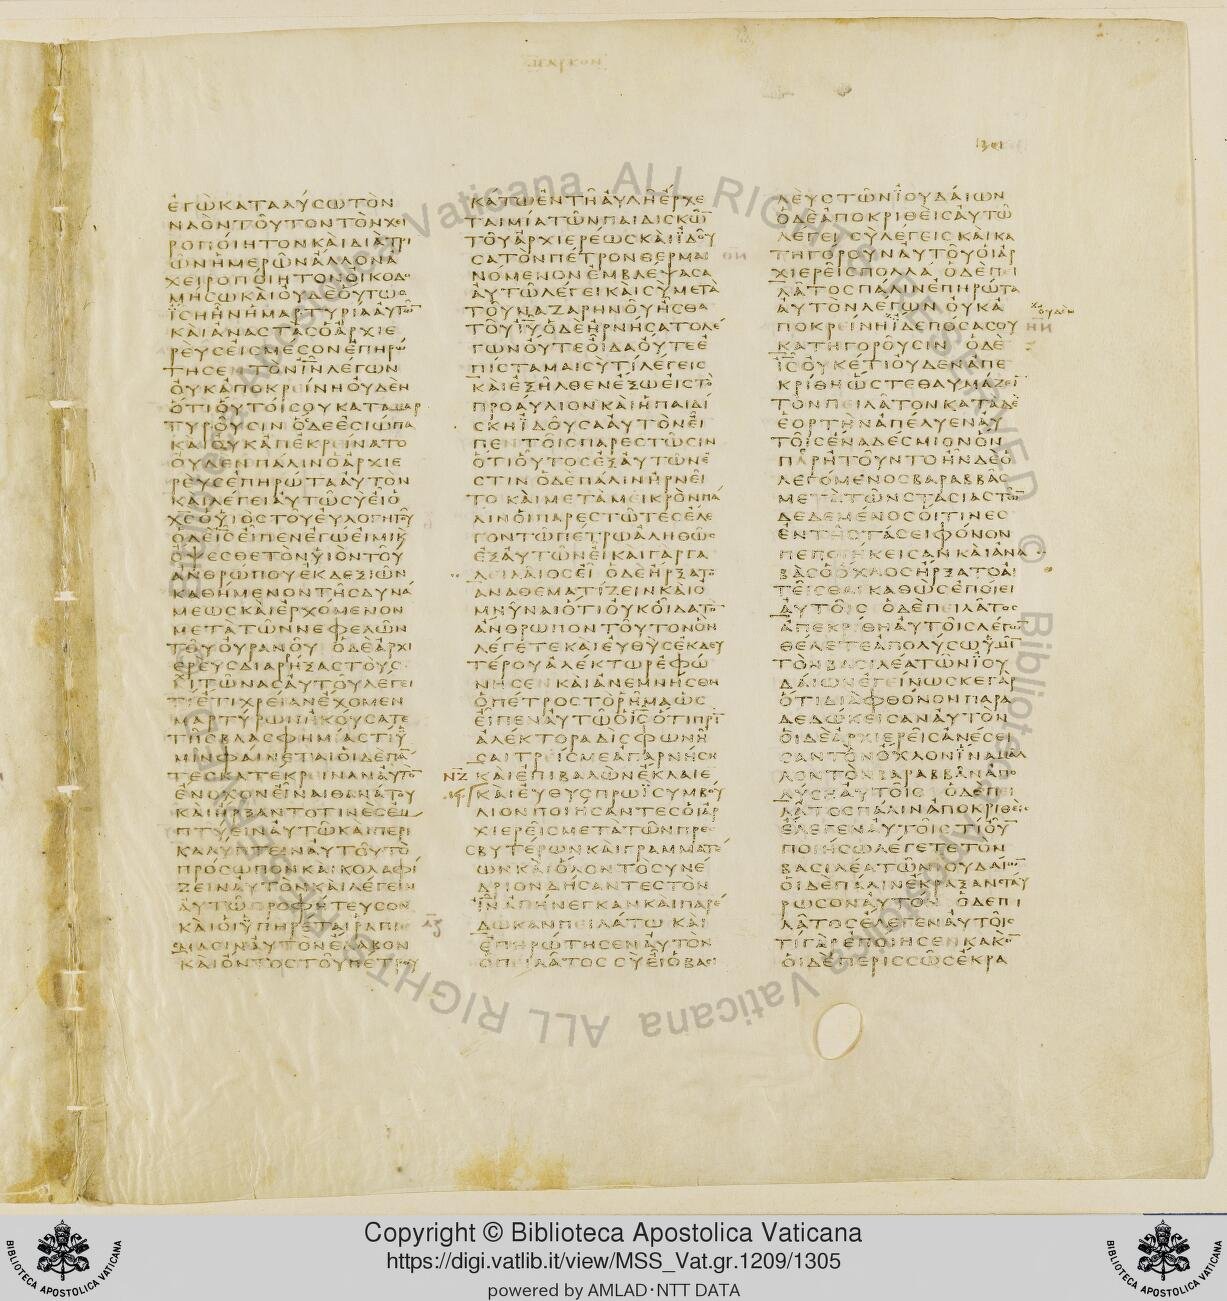 ΕΓΩΚΑΤΑΛΥΣΩΤΟΝ
ΝΑΟΝΤΟΥΤΟΝΤΟΝΧΕΙ
ΡΟΠΟΙΗΤΟΝΚΑΙΔΙΑΤΡΙ
ΩΝΗΜΕΡΩΝΑΛΛΟΝΑ
ΧΕΙΡΟΠΟΙΗΤΟΝΟΙΚΟΔΟ
ΜΗΣΩΚΑΙΟΥΔΕΟΥΤΩΣ
ΪΣΗΗΝΗΜΑΡΤΥΡΙΑΑΥΤΩ̅
ΚΑΙΑΝΑΣΤΑΣΟΑΡΧΙΕ
ΡΕΥΣΕΙΣΜΕΣΟΝΕΠΗΡΩ
ΤΗΣΕΝΤΟΝΙ̅Ν̅ΛΕΓΩΝ
ΟΥΚΑΠΟΚΡΕΙΝΗΟΥΔΕΝ
ΟΤΙΟΥΤΟΙΣΟΥΚΑΤΑΜΑΡ
ΤΥΡΟΥΣΙΝ ΟΔΕΕΣΙΩΠΑ
ΚΑΙΟΥΚΑΠΕΚΡΕΙΝΑΤΟ
ΟΥΔΕΝΠΑΛΙΝΟΑΡΧΙΕ
ΡΕΥΣΕΠΗΡΩΤΑΑΥΤΟΝ
ΚΑΙΛΕΓΕΙΑΥΤΩΣΥΕΙΟ
ΧΣΟΥΙΟΣΤΟΥΕΥΛΟΓΗΤΟΥ
ΟΔΕΙ̅Σ̅ΕΙΠΕΝΕΓΩΕΙΜΙΚ
ΟΨΕΣΘΕΤΟΝΥΙΟΝΤΟΥ
ΑΝΘΡΩΠΟΥΕΚΔΕΞΙΩΝ
ΚΑΘΗΜΕΝΟΝΤΗΣΔΥΝΑ
ΜΕΩΣΚΑΙΕΡΧΟΜΕΝΟΝ
ΜΕΤΑΤΩΝΝΕΦΕΛΩΝ
ΤΟΥΟΥΡΑΝΟΥ ΟΔΕΑΡΧΙ
ΕΡΕΥΣΔΙΑΡΗΞΑΣΤΟΥΣ
ΧΙΤΩΝΑΣΑΥΤΟΥΛΕΓΕΙ
ΤΙΕΤΙΧΡΕΙΑΝΕΧΟΜΕΝ
ΜΑΡΤΥΡΩΝΗΚΟΥΣΑΤΕ
ΤΗΣΒΛΑΣΦΗΜΙΑΣΤΙΫ
ΜΙΝΦΑΙΝΕΤΑΙΟΙΔΕΠΑ̅
ΤΕΣΚΑΤΕΚΡΕΙΝΑΝΑΥΤΟ̅
ΕΝΟΧΟΝΕΙΝΑΙΘΑΝΑΤΟΥ
ΚΑΙΗΡΞΑΝΤΟΤΙΝΕΣΕΜ
ΠΤΥΕΙΝΑΥΤΩΚΑΙΠΕΡΙ
ΚΑΛΥΠΤΕΙΝΑΥΤΟΥΤΟ
ΠΡΟΣΩΠΟΝΚΑΙΚΟΛΑΦΙ
ΖΕΙΝΑΥΤΟΝΚΑΙΛΕΓΕΙΝ
ΑΥΤΩΠΡΟΦΗΤΕΥΣΟΝ
ΚΑΙΟΙΫΠΗΡΕΤΑΙΡΑΠΙΣ
ΜΑΣΙΝΑΥΤΟΝΕΛΑΒΟΝ
ΚΑΙΟΝΤΟΣΤΟΥΠΕΤΡΟΥ
ΚΑΤΩΕΝΤΗΑΥΛΗΕΡΧΕ
ΤΑΙΜΙΑΤΩΝΠΑΙΔΙΣΚΩ̅
ΤΟΥΑΡΧΙΕΡΕΩΣΚΑΙΪΔΟΥ
ΣΑΤΟΝΠΕΤΡΟΝΘΕΡΜΑΙ
ΝΟΜΕΝΟΝΕΜΒΛΕΨΑΣΑ
ΑΥΤΩΛΕΓΕΙΚΑΙΣΥΜΕΤΑ
ΤΟΥΝΑΖΑΡΗΝΟΥΗΣΘΑ
ΤΟΥΙ̅Υ̅ΟΔΕΗΡΝΗΣΑΤΟΛΕ
ΓΩΝΟΥΤΕΟΙΔΑΟΥΤΕΕ
ΠΙΣΤΑΜΑΙΣΥΤΙΛΕΓΕΙΣ
ΚΑΙΕΞΗΛΘΕΝΕΞΩΕΙΣΤΟ
ΠΡΟΑΥΛΙΟΝΚΑΙΗΠΑΙΔΙ
ΣΚΗΪΔΟΥΣΑΑΥΤΟΝΕΙ
ΠΕΝΤΟΙΣΠΑΡΕΣΤΩΣΙΝ
ΟΤΙΟΥΤΟΣΕΞΑΥΤΩΝΕ
ΣΤΙΝ ΟΔΕΠΑΛΙΝΗΡΝΕΙ
ΤΟ ΚΑΙΜΕΤΑΜΕΙΚΡΟΝΠΑ
ΛΙΝΟΙΠΑΡΕΣΤΩΤΕΣΕΛΕ
ΓΟΝΤΩΠΕΤΡΩΑΛΗΘΩΣ
ΕΞΑΥΤΩΝΕΙΚΑΙΓΑΡΓΑ
ΛΕΙΛΑΙΟΣΕΙ ΟΔΕΗΡΞΑΤΟ
ΑΝΑΘΕΜΑΤΙΖΕΙΝΚΑΙΟ
ΜΝΥΝΑΙΟΤΙΟΥΚΟΙΔΑΤΟ̅
ΑΝΘΡΩΠΟΝΤΟΥΤΟΝΟΝ
ΛΕΓΕΤΕΚΑΙΕΥΘΥΣΕΚΔΕΥ
ΤΕΡΟΥΑΛΕΚΤΩΡΕΦΩ
ΝΗΣΕΝΚΑΙΑΝΕΜΝΗΣΘΗ
ΟΠΕΤΡΟΣΤΟΡΗΜΑΩΣ
ΕΙΠΕΝΑΥΤΩΟΙ̅Σ̅ΟΤΙΠΡΙ̅
ΑΛΕΚΤΟΡΑΔΙΣΦΩΝΗ
ΣΑΙΤΡΕΙΣΜΕΑΠΑΡΝΗΣΗ
Ν̅Ζ̅ ΚΑΙΕΠΙΒΑΛΩΝΕΚΛΑΙΕ
ΚΑΙΕΥΘΥΣΠΡΩΪΣΥΜΒΟΥ
ΛΙΟΝΠΟΙΗΣΑΝΤΕΣΟΙΑΡ
ΧΙΕΡΕΙΣΜΕΤΑΤΩΝΠΡΕ
ΣΒΥΤΕΡΩΝΚΑΙΓΡΑΜΜΑΤΕ
ΩΝΚΑΙΟΛΟΝΤΟΣΥΝΕ
ΔΡΙΟΝΔΗΣΑΝΤΕΣΤΟΝ
Ι̅Ν̅ΑΠΗΝΕΓΚΑΝΚΑΙΠΑΡΕ
ΔΩΚΑΝΠΕΙΛΑΤΩ ΚΑΙ
ΕΠΗΡΩΤΗΣΕΝΑΥΤΟΝ
ΟΠΕΙΛΑΤΟΣ ΣΥΕΙΟΒΑΣΙ
ΛΕΥΣΤΩΝΪΟΥΔΑΙΩΝ
ΟΔΕΑΠΟΚΡΙΘΕΙΣΑΥΤΩ
ΛΕΓΕΙ ΣΥΛΕΓΕΙΣ ΚΑΙΚΑ
ΤΗΓΟΡΟΥΝΑΥΤΟΥΟΙΑΡ
ΧΙΕΡΕΙΣΠΟΛΛΑ ΟΔΕΠΕΙ
ΛΑΤΟΣΠΑΛΙΝΕΠΗΡΩΤΑ
ΑΥΤΟΝΛΕΓΩΝ ΟΥΚΑ
ΠΟΚΡΕΙΝΗΪΔΕΠΟΣΑΣΟΥ
ΚΑΤΗΓΟΡΟΥΣΙΝ ΟΔΕ
Ι̅Σ̅ΟΥΚΕΤΙΟΥΔΕΝΑΠΕ
ΚΡΙΘΗΩΣΤΕΘΑΥΜΑΖΕΙ̅
ΤΟΝΠΕΙΛΑΤΟΝΚΑΤΑΔΕ
ΕΟΡΤΗΝΑΠΕΛΥΕΝΑΥ
ΤΟΙΣΕΝΑΔΕΣΜΙΟΝΟΝ
ΠΑΡΗΤΟΥΝΤΟΗΝΔΕΟ
ΛΕΓΟΜΕΝΟΣΒΑΡΑΒΒΑΣ
ΜΕΤΑΤΩΝΣΤΑΣΙΑΣΤΩ̅
ΔΕΔΕΜΕΝΟΣΟΙΤΙΝΕΣ
ΕΝΤΗΣΤΑΣΕΙΦΟΝΟΝ
ΠΕΠΟΙΗΚΕΙΣΑΝΚΑΙΑΝΑ
ΒΑΣΟΟΧΛΟΣΗΡΞΑΤΟΑΙ
ΤΕΙΣΘΑΙΚΑΘΩΣΕΠΟΙΕΙ
ΑΥΤΟΙΣ ΟΔΕΠΕΙΛΑΤΟΣ
ΑΠΕΚΡΙΘΗΑΥΤΟΙΣΛΕΓΩ̅
ΘΕΛΕΤΕΑΠΟΛΥΣΩΫΜΙ̅
ΤΟΝΒΑΣΙΛΕΑΤΩΝΪΟΥ
ΔΑΙΩΝΕΓΕΙΝΩΣΚΕΓΑΡ
ΟΤΙΔΙΑΦΘΟΝΟΝΠΑΡΑ
ΔΕΔΩΚΕΙΣΑΝΑΥΤΟΝ
ΟΙΔΕΑΡΧΙΕΡΕΙΣΑΝΕΣΕΙ
ΣΑΝΤΟΝΟΧΛΟΝΪΝΑΜΑΛ
ΛΟΝΤΟΝΒΑΡΑΒΒΑΝΑΠΟ
ΛΥΣΗΑΥΤΟΙΣ ΟΔΕΠΕΙ
ΛΑΤΟΣΠΑΛΙΝΑΠΟΚΡΙΘΕΙΣ
ΕΛΕΓΕΝΑΥΤΟΙΣ ΤΙΟΥ̅
ΠΟΙΗΣΩΛΕΓΕΤΕΤΟΝ
ΒΑΣΙΛΕΑΤΩΝΙΟΥΔΑΙΩ̅
ΟΙΔΕΠΑΛΙΝΕΚΡΑΞΑΝΣΤΑΥ
ΡΩΣΟΝΑΥΤΟΝ ΟΔΕΠΕΙ
ΛΑΤΟΣΕΛΕΓΕΝΑΥΤΟΙΣ
ΤΙΓΑΡΕΠΟΙΗΣΕΝΚΑΚΟ̅
ΟΙΔΕΠΕΡΙΣΣΩΣΕΚΡΑ
Vaticana ALL RIGHTS RESERVED © Biblioteca Apostolica Vaticana ALL RIGHTS RESERVED
Copyright © Biblioteca Apostolica Vaticana
https://digi.vatlib.it/view/MSS_Vat.gr.1209/1305
powered by AMLAD·NTT DATA
BIBLIOTECA APOSTOLICA VATICANA
BIBLIOTECA APOSTOLICA VATICANA